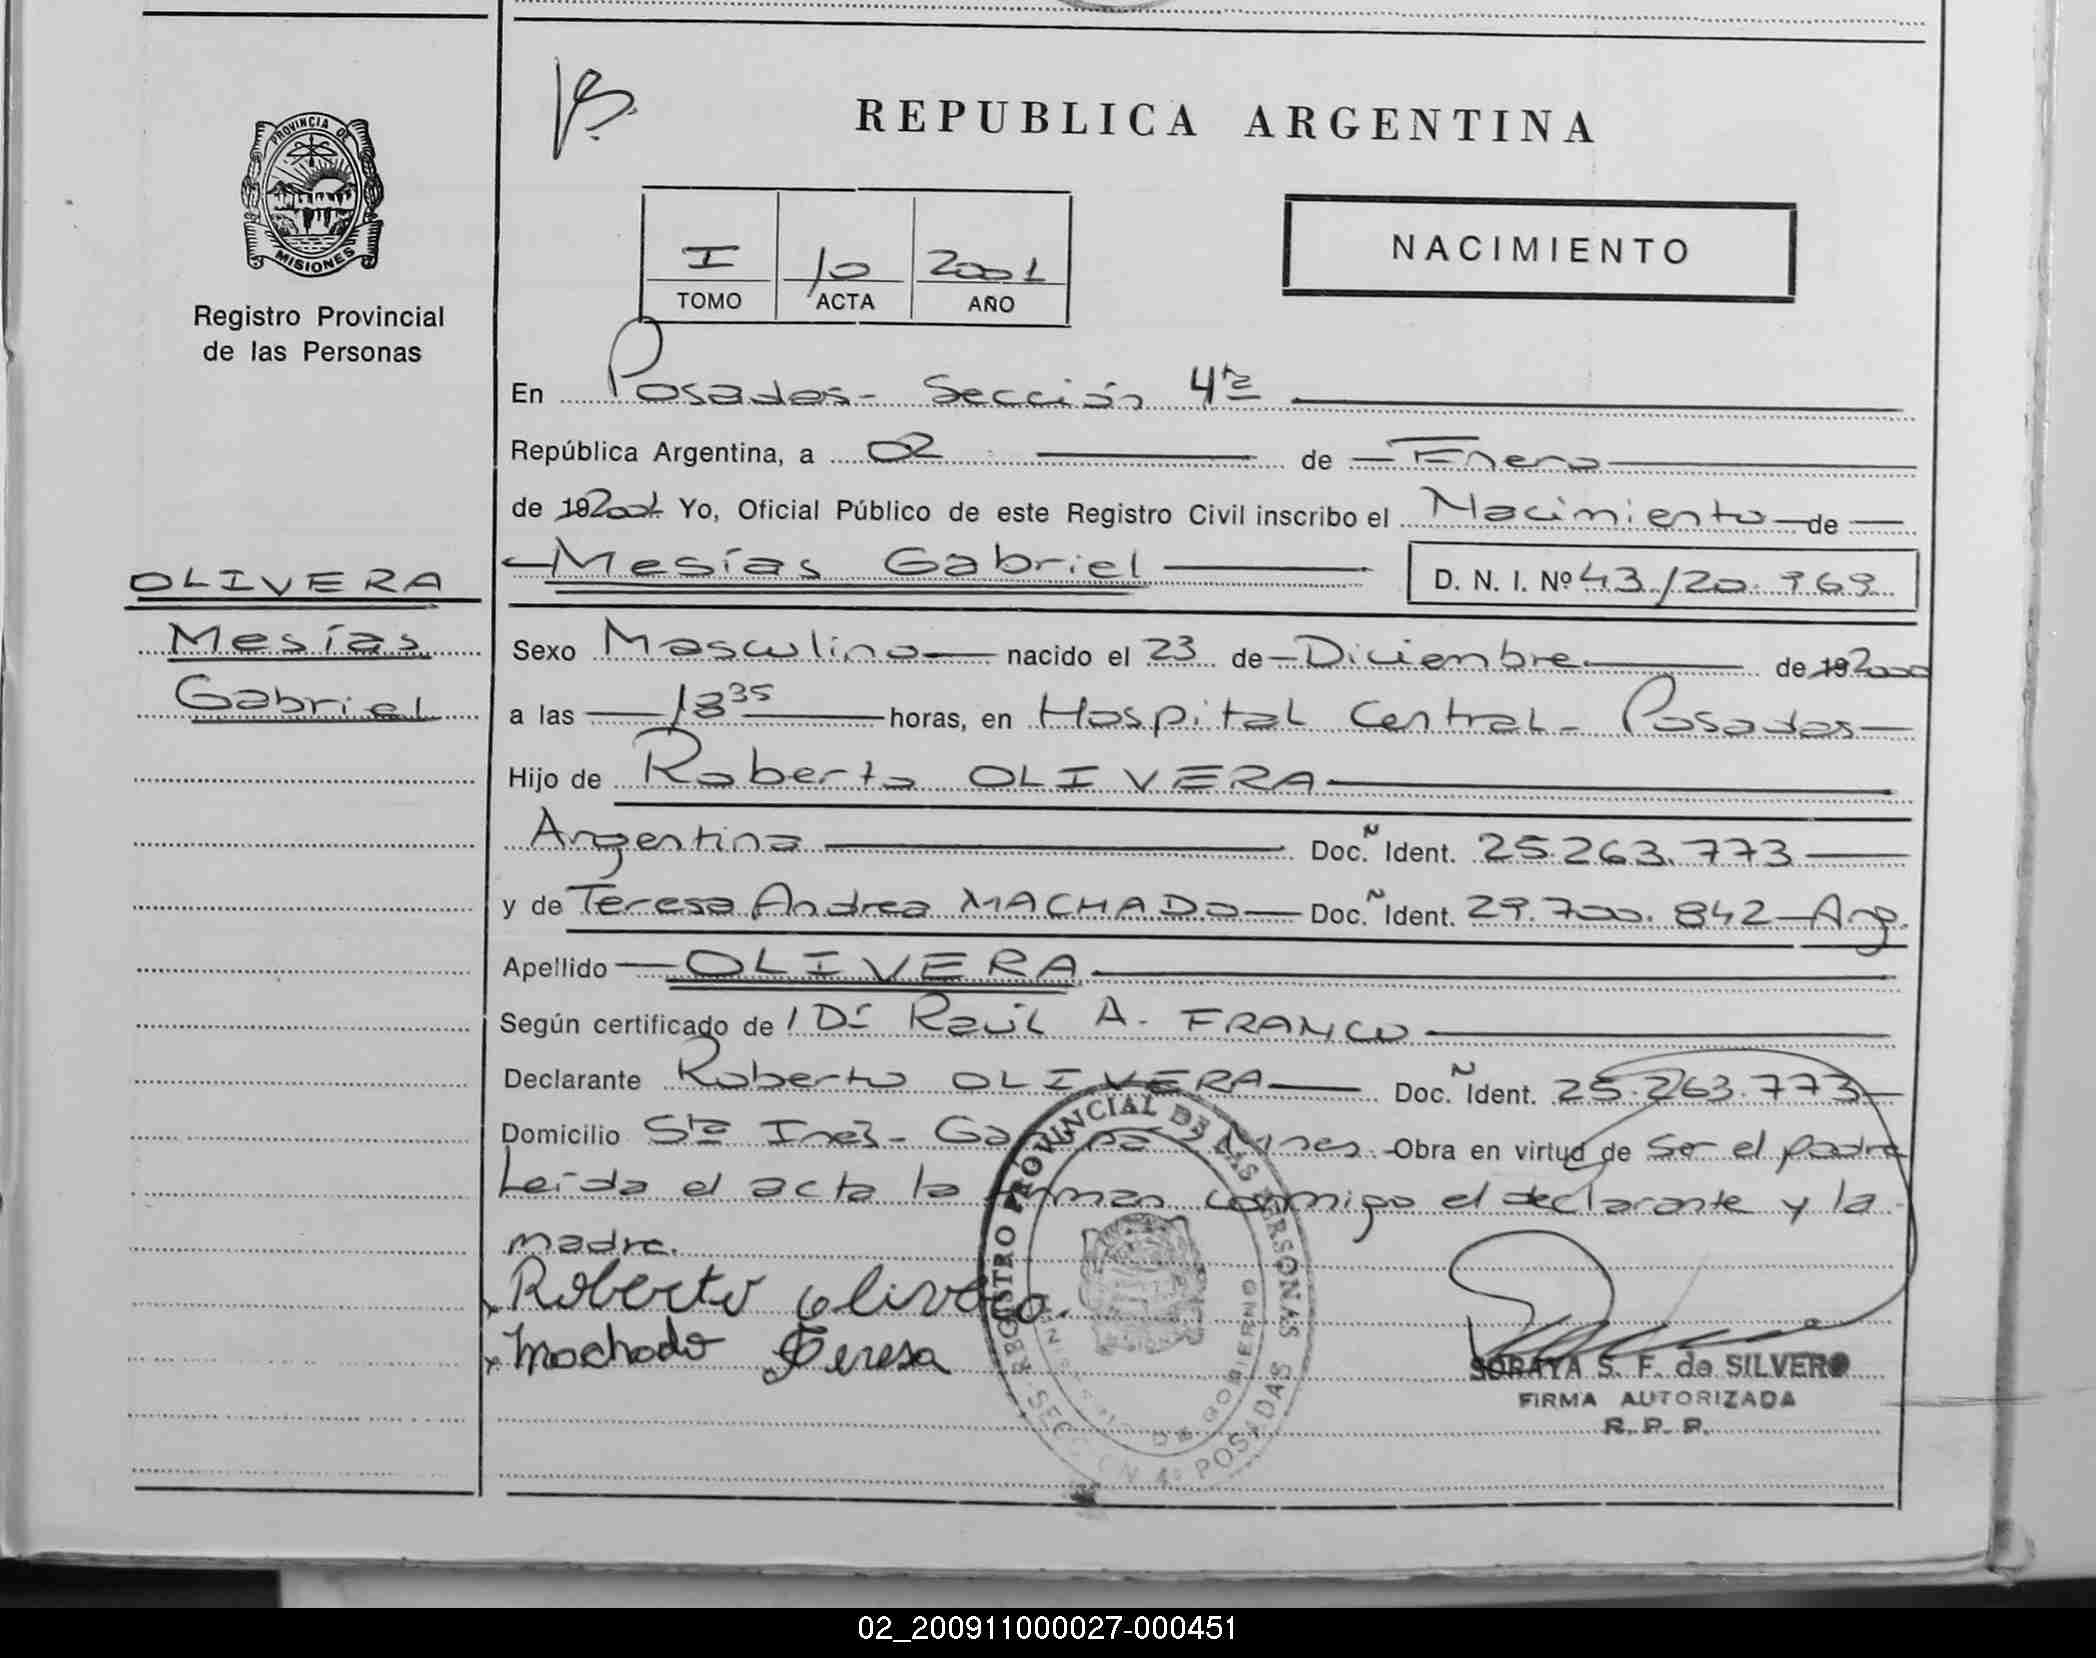 REPUBLICA ARGENTINA
PROVINCIA DE
MISIONES
Registro Provincial
de las Personas
NACIMIENTO
I 10 2001
TOMO ACTA AÑO
En Posadas - Sección 4ta
República Argentina, a 02 de Enero
de 192001 Yo, Oficial Público de este Registro Civil inscribo el Nacimiento de
Mesías Gabriel D. N. I. Nº 43.120.969
OLIVERA
Mesías
Gabriel
Sexo Masculino nacido el 23 de Diciembre de 192000
a las 1835 horas, en Hospital Central - Posadas
Hijo de Roberto OLIVERA
Argentina Doc. Ident. 25.263.773
y de Teresa Andrea MACHADO Doc. Ident. 29.700.842 Arg.
Apellido OLIVERA
Según certificado de / Dr Raúl A. FRANCO
Declarante Roberto OLIVERA Doc. Ident. 25.263.773
Domicilio Sta Inés - Mnes. Obra en virtud de Ser el padre
Leída el acta la firman conmigo el declarante y la
madre.
Roberto Olivera.
Machado Teresa
REGISTRO PROVINCIAL DE LAS PERSONAS
DE GOBIERNO
SECCION 4º POSADAS
SORAYA S. F. de SILVERO
FIRMA AUTORIZADA
R. P. P.
02_200911000027-000451